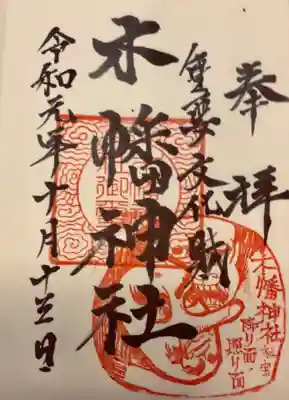 奉拝
重要文化財
木幡神社
令和元年十月十三日
木幡神社社宝
降り面
照り面